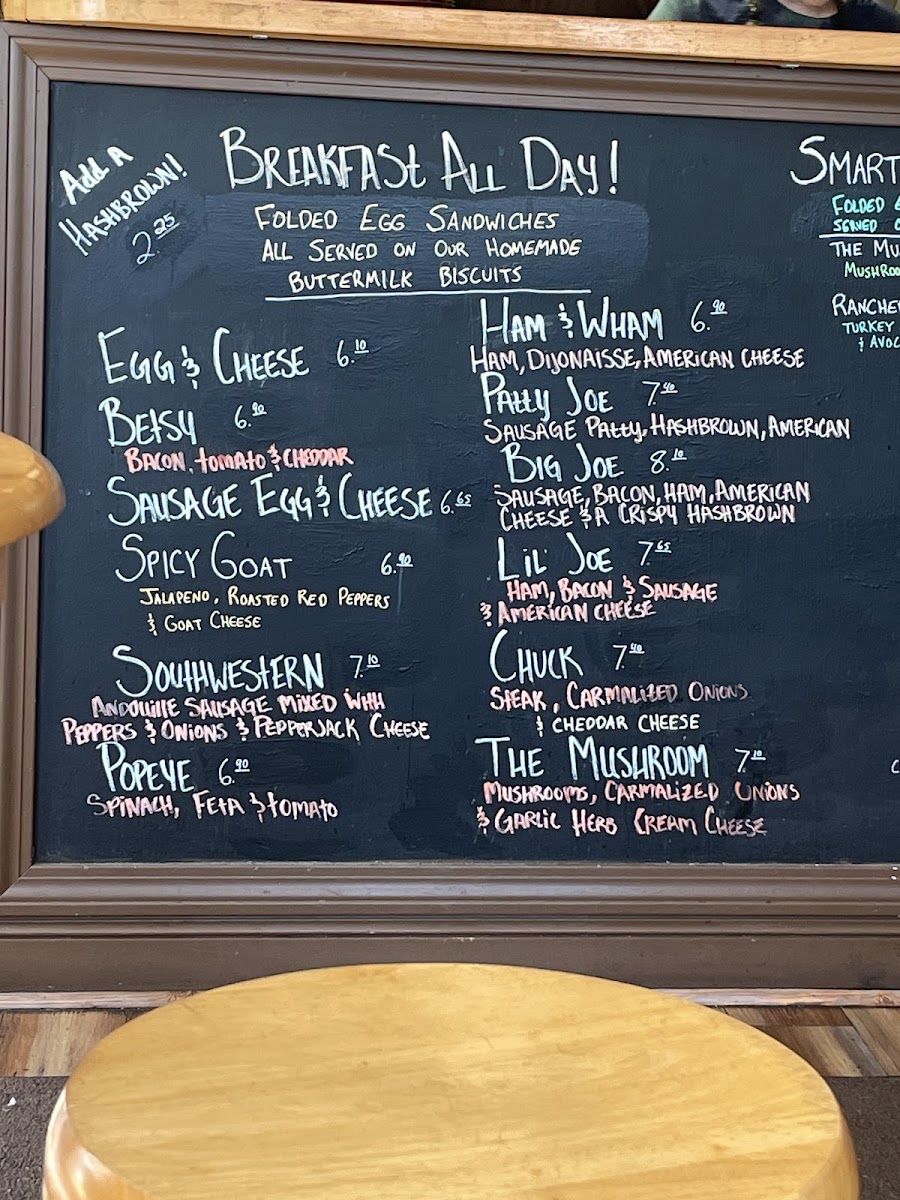 Add A
HASHBROWN!
2.25
BREAKFAST ALL DAY!
FOLDED EGG SANDWICHES
ALL SERVED ON OUR HOMEMADE
BUTTERMILK BISCUITS
EGG & CHEESE 6.10
BETSY 6.90
BACON, TOMATO & CHEDDAR
SAUSAGE EGG & CHEESE 6.65
SPICY GOAT 6.90
JALAPENO, ROASTED RED PEPPERS
& GOAT CHEESE
SOUTHWESTERN 7.10
ANDOUILLE SAUSAGE MIXED WITH
PEPPERS & ONIONS & PEPPERJACK CHEESE
POPEYE 6.90
SPINACH, FETA & TOMATO
HAM & WHAM 6.90
HAM, DIJONAISSE, AMERICAN CHEESE
PATTY JOE 7.40
SAUSAGE PATTY, HASHBROWN, AMERICAN
BIG JOE 8.10
SAUSAGE, BACON, HAM, AMERICAN
CHEESE & A CRISPY HASHBROWN
LIL' JOE 7.65
HAM, BACON & SAUSAGE
& AMERICAN CHEESE
CHUCK 7.40
STEAK, CARMALIZED ONIONS
& CHEDDAR CHEESE
THE MUSHROOM 7.10
MUSHROOMS, CARMALIZED ONIONS
& GARLIC HERB CREAM CHEESE
SMART
FOLDED
SERVED
THE MU
MUSHROO
RANCHE
TURKEY
& AVOC